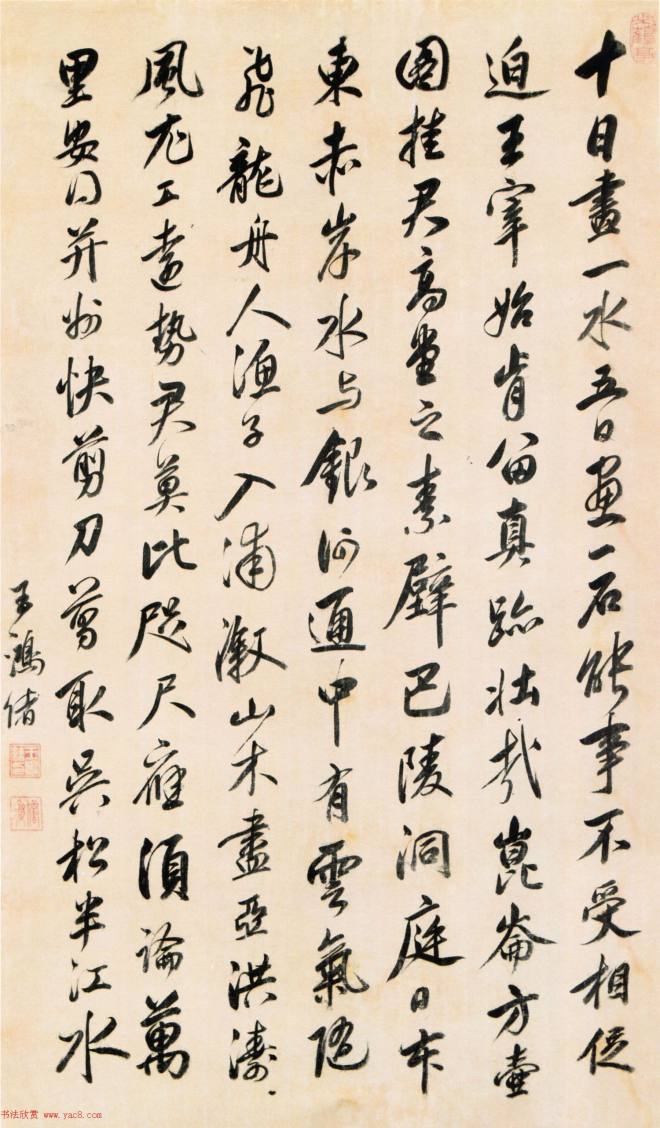 十日畫一水五日畫一石能事不受相促
迫王宰始肯留真跡壯哉崑崙方壺
圖挂君高堂之素壁巴陵洞庭日本
東赤岸水与銀河通中有雲氣隨
飛龍舟人漁子入浦漵山木盡亞洪濤
風尤工遠勢君莫比咫尺應須論萬
里安得并州快剪刀剪取吳松半江水
王鴻緒
书法欣赏 www.yac8.com